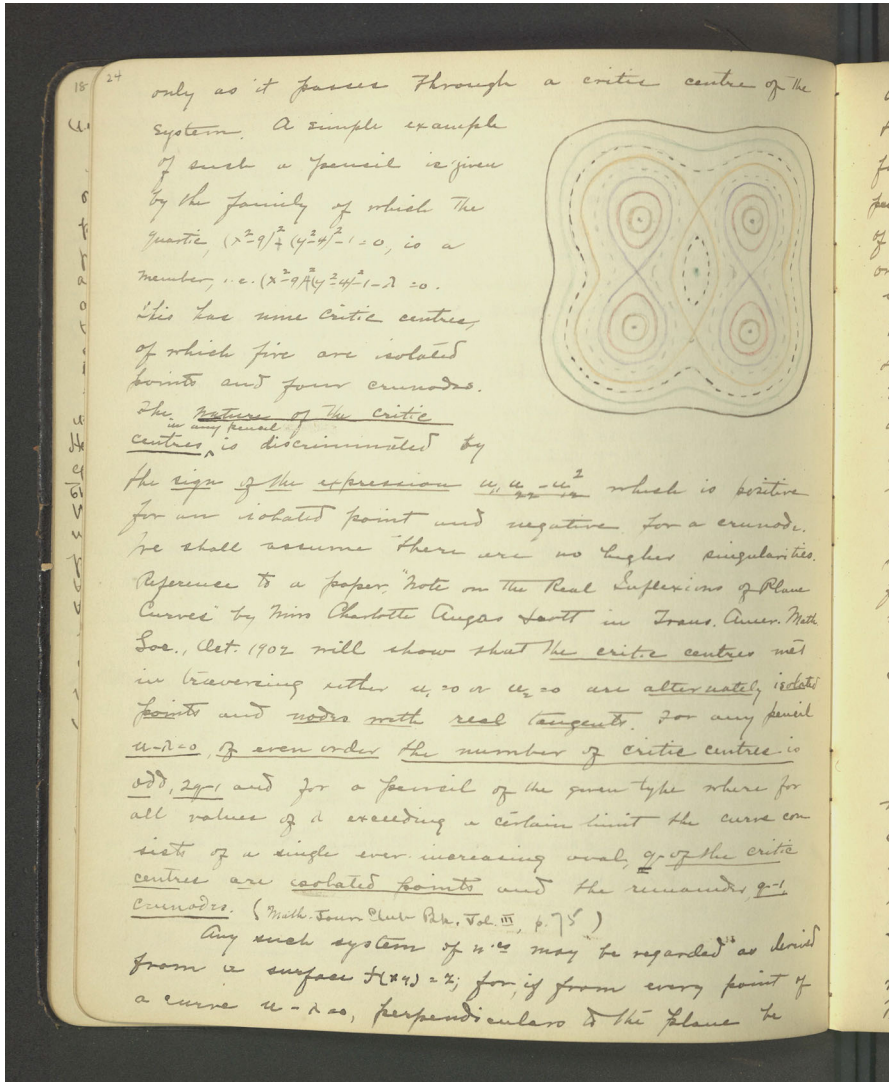 18
24
only as it passes through a critic centre of the
system. A simple example
of such a pencil is given
by the family of which the
quartic, (x²-9)²+(y²-4)²-1=0, is a
member, i.e. (x²-9)²+(y²-4)²-1-λ=0.
This has nine critic centres,
of which five are isolated
points and four crunodes.
The nature of the critic
in any pencil
centres ‸ is discriminated by
the sign of the expression u₁₁u₂₂-u₁₂² which is positive
for an isolated point and negative for a crunode.
We shall assume there are no higher singularities.
Reference to a paper, "Note on the Real Inflexions of Plane
Curves" by Miss Charlotte Angas Scott in Trans. Amer. Math
Soc., Oct. 1902 will show that the critic centres met
in traversing either u₁=0 or u₂=0 are alternately isolated
points and nodes with real tangents. For any pencil
u-λ=0, of even order the number of critic centres is
odd, 2q-1 and for a pencil of the given type where for
all values of λ exceeding a certain limit the curve con
sists of a single ever increasing oval, q of the critic
centres are isolated points and the remainder, q-1,
crunodes. (Math. Journ Club Bk. Vol. III, p. 75)
Any such system of u's may be regarded as derived
from a surface f(xy)=z; for, if from every point of
a curve u-λ=0, perpendiculars to the plane be